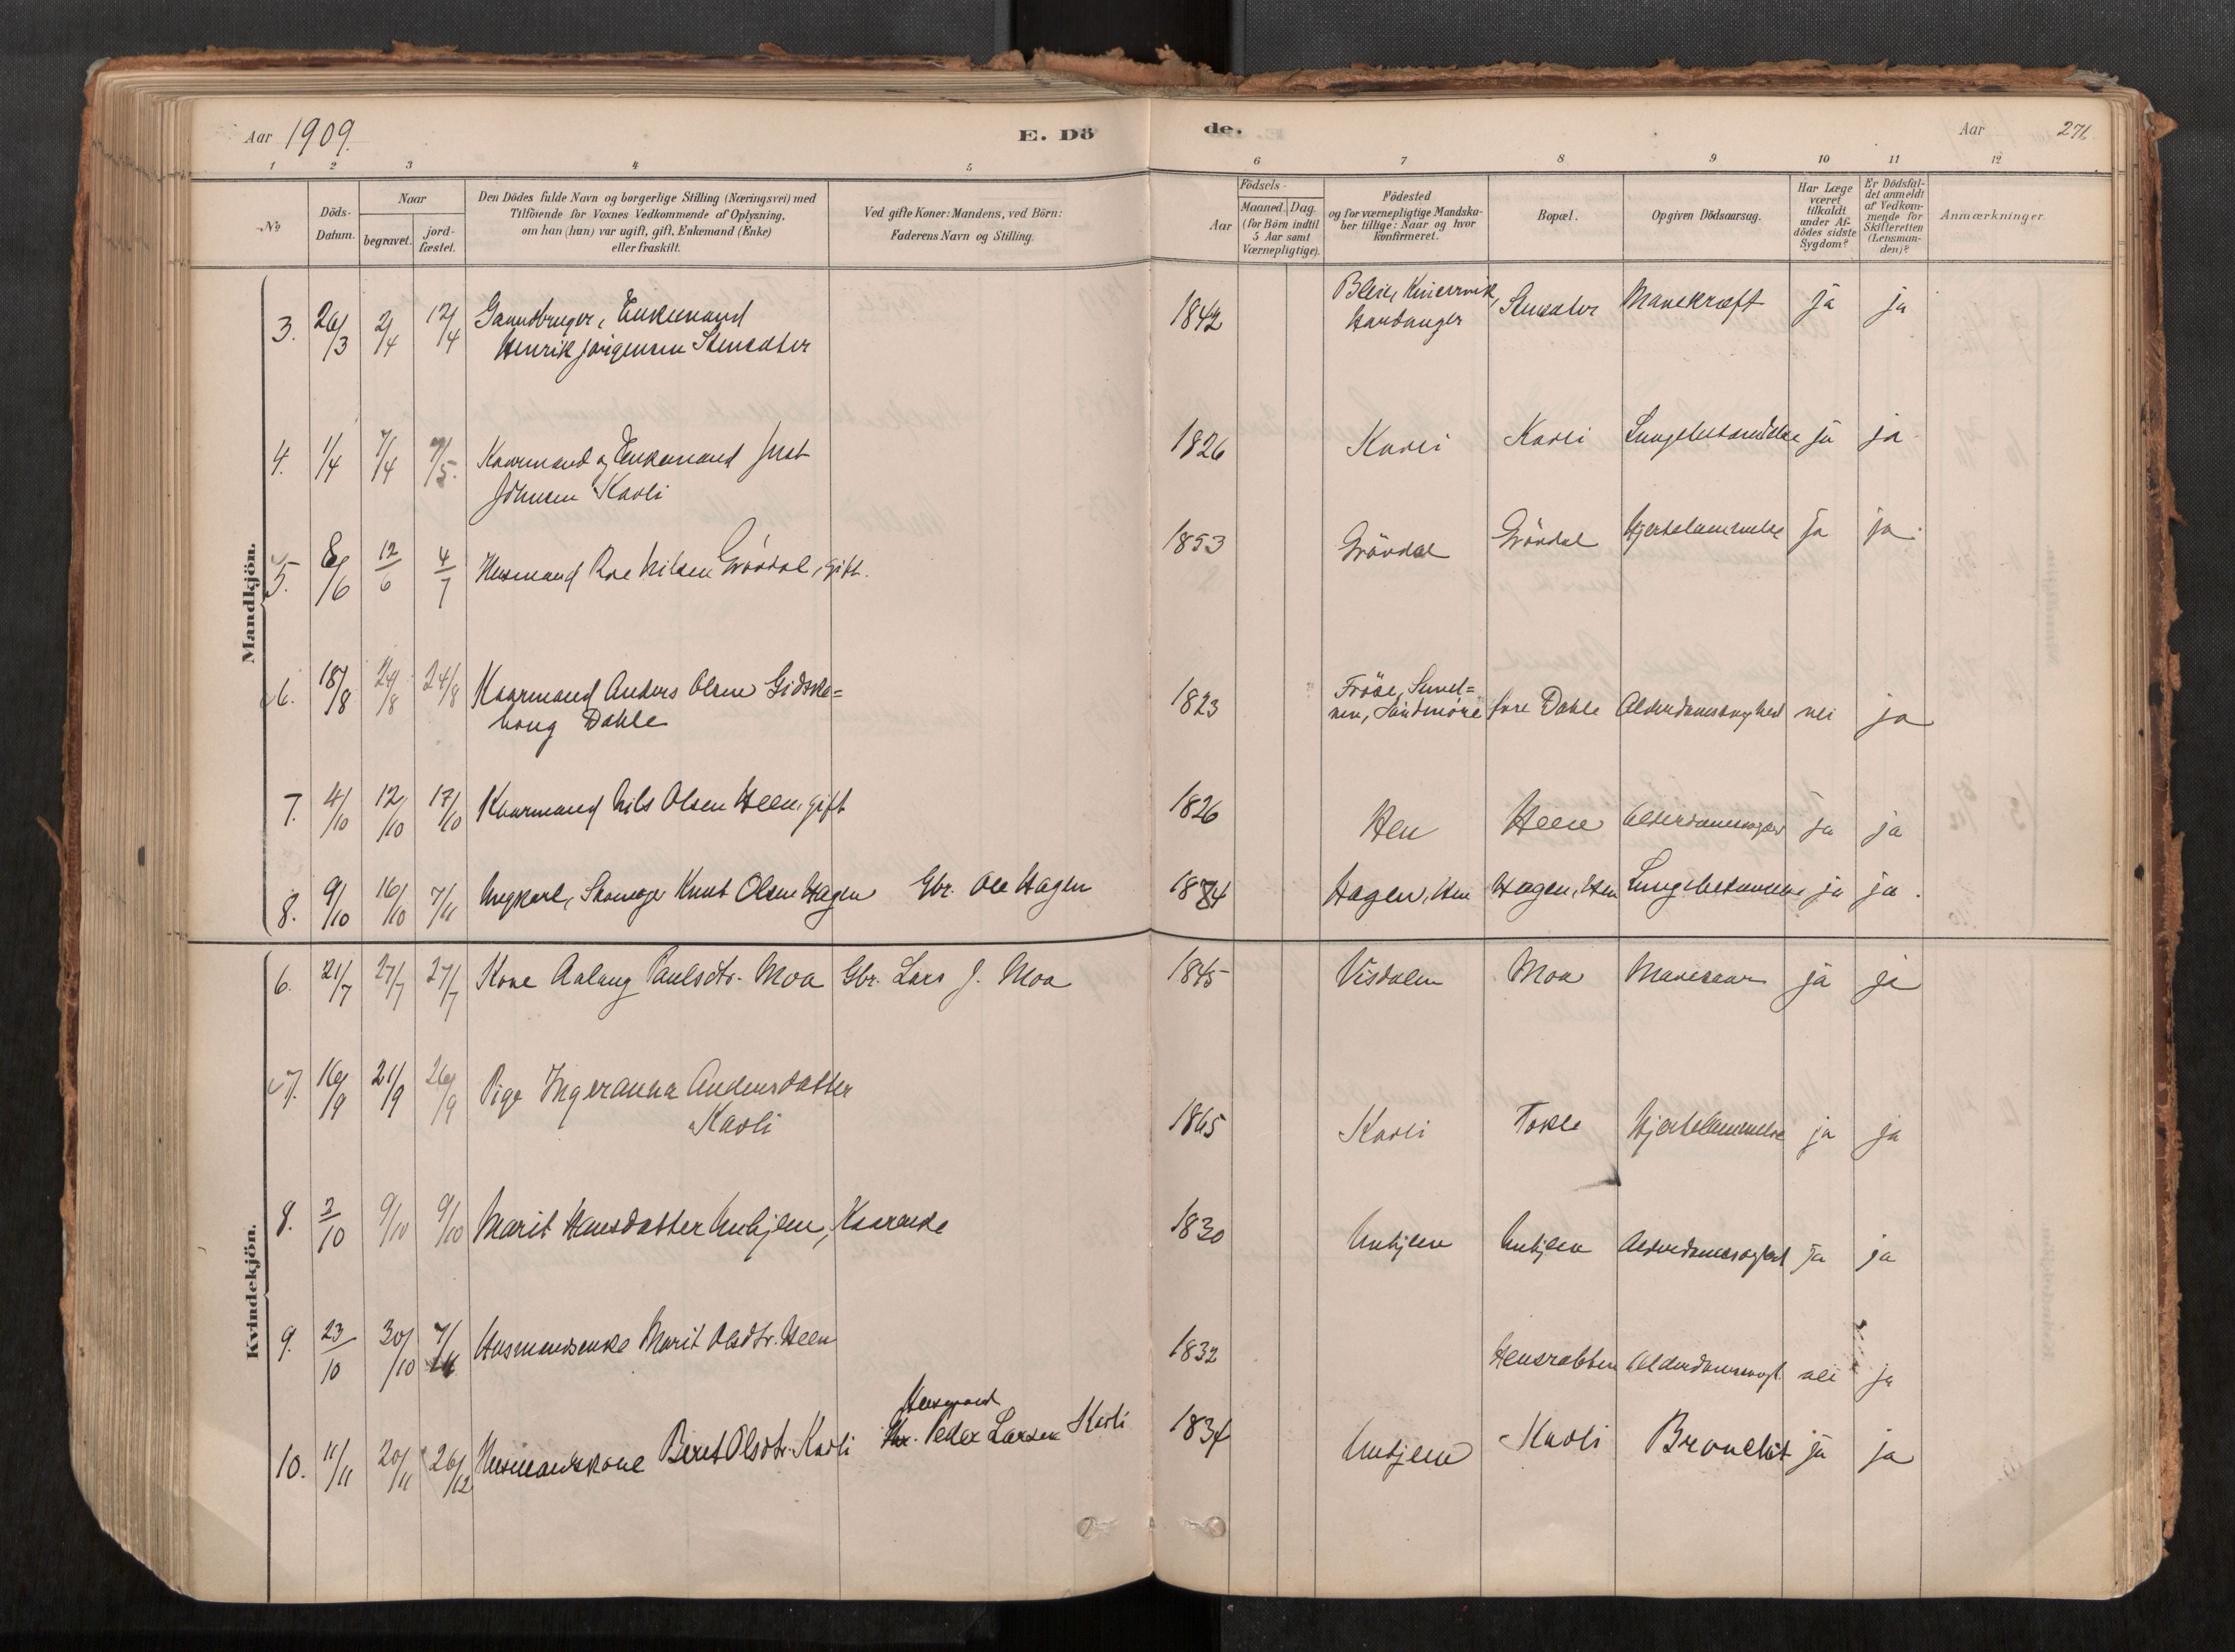 Aar 1909.
E. Dö
de.
Aar
271.
1 2 3 4 5 6 7 8 9 10 11 12
No
Döds-
Datum.
Naar
begravet.
jord-
fæstet.
Den Dödes fulde Navn og borgerlige Stilling (Næringsvei) med
Tilföiende for Voxnes Vedkommende af Oplysning,
om han (hun) var ugift, gift, Enkemand (Enke)
eller fraskilt.
Ved gifte Koner: Mandens, ved Börn:
Faderens Navn og Stilling.
Födsels-
Aar
Maaned.
Dag.
(for Börn indtil
5 Aar samt
Værnepligtige).
Födested
og for værnepligtige Mandska-
ber tillige: Naar og hvor
konfirmeret.
Bopæl.
Opgiven Dödsaarsag.
Har Læge
været
tilkaldt
under Af-
dödes sidste
Sygdom?
Er Dödsfal-
det anmeldt
af Vedkom-
mende for
Skifteretten
(Lensman-
den)?
Anmærkninger.
Mandkjön.
3. 26/3 2/4 12/4 Gaardbruger, Enkemand
Henrik Jörgensen Stensæter
1842 Hardanger Stensæter Mavekræft ja ja
4. 1/4 7/4 7/5. Kaarmand og Enkemand
Johnsen Kavli
1826 Kavli Kavli Lungebetændelse ja ja
5. 8/6 12/6 4/7 Husmand Roe Nilsen Grövdal, gift.
1853 Grövdal Grövdal Hjertelammelse ja ja.
6. 18/8 24/8 24/8 Kaarmand Anders Olsen Gidske=
houg Dahle
1823 Söndmöre Dahle Alderdomssvaghed nei ja
7. 4/10 12/10 17/10 Kaarmand Nils Olsen Heen, gift
1826 Hen Heen Alderdomssvaghed ja ja
8. 9/10 16/10 7/11 Ungkarl, Skomager Knut Olsen Hagen Gbr. Ole Hagen
Hagen, Hen Hagen, Hen Lungebetændelse ja ja.
Kvindekjön.
6. 21/7 27/7 27/7 Kone Aalaug Paulsdtr. Moa Gbr. Lars J. Moa
1845 Visdalen Moa Mavesaar ja ja
7. 16/9 21/9 26/9 Pige Ingeranna Andersdatter
Kavli
1865 Kavli Tokle Hjertelammelse ja ja
8. 2/10 9/10 9/10 Marit Hansdatter Unhjem, Kaarenke
1830 Unhjem Unhjem Alderdomssvaghed ja ja
9. 23/10 30/10 7/11 Husmandsenke Marit Olsdtr. Heen
1832 Hensrabben Alderdomssvagh. nei ja
10. 11/11 20/11 26/12 Husmandskone Beret Olsdtr. Kavli
Husmand
Peder Larsen Kavli
1834 Unhjem Kavli Bronchit ja ja